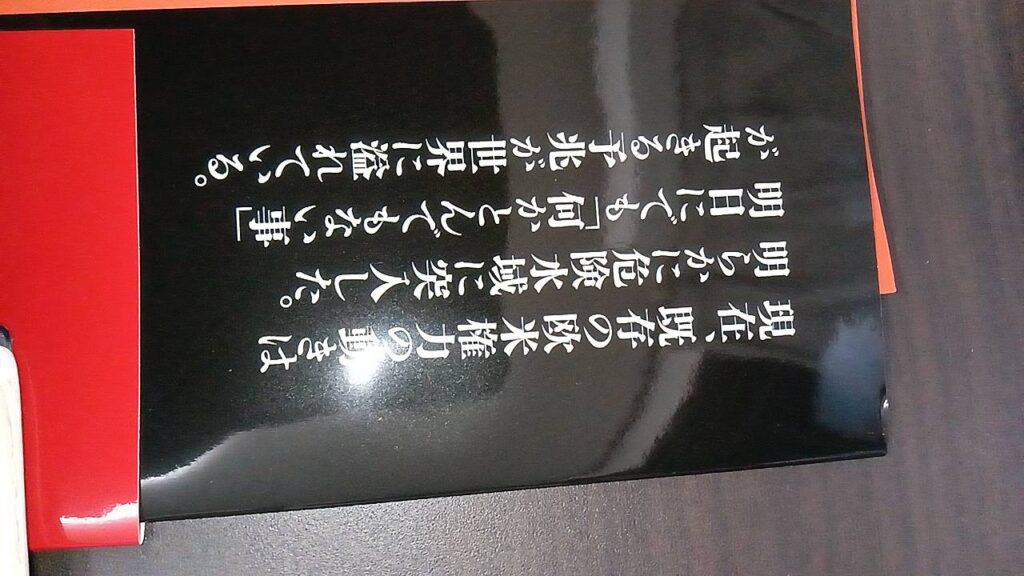 現在、既存の欧米権力の動きは
明らかに危険水域に突入した。
明日にでも「何かとんでもない事」
が起きる予兆が世界に溢れている。